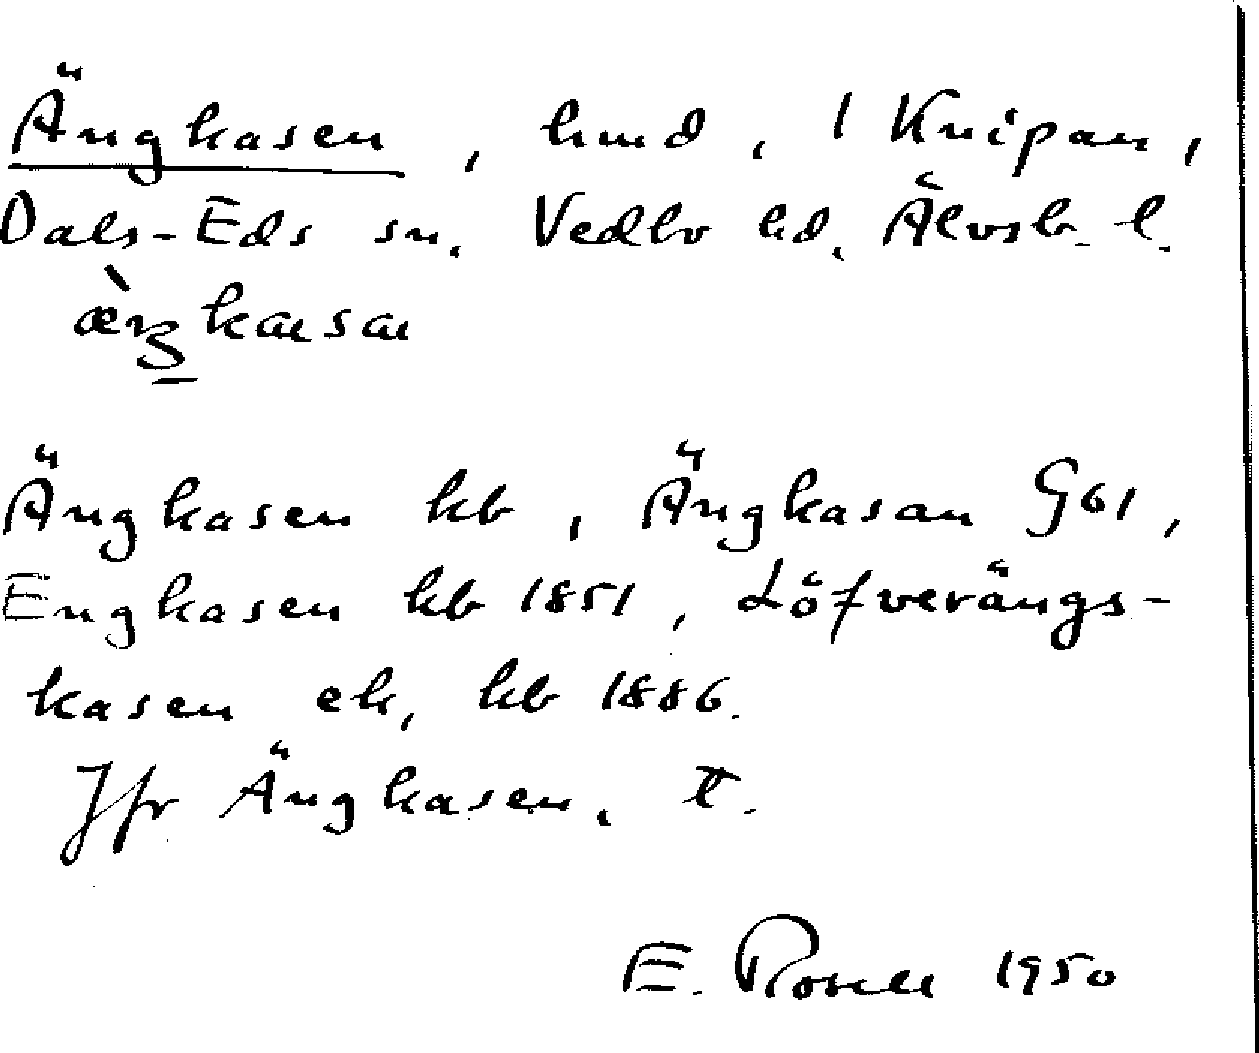 Ängkasen, hmd, 1 Knipan,
Dals-Eds sn. Vedbo hd. Älvsb. l.
Ängkasen kb, Ängkasan G61,
Engkasen kb 1851, Löfverängs-
kasen ek, kb 1886.
Jfr Ängkasen, t.
E. Rosell 1950